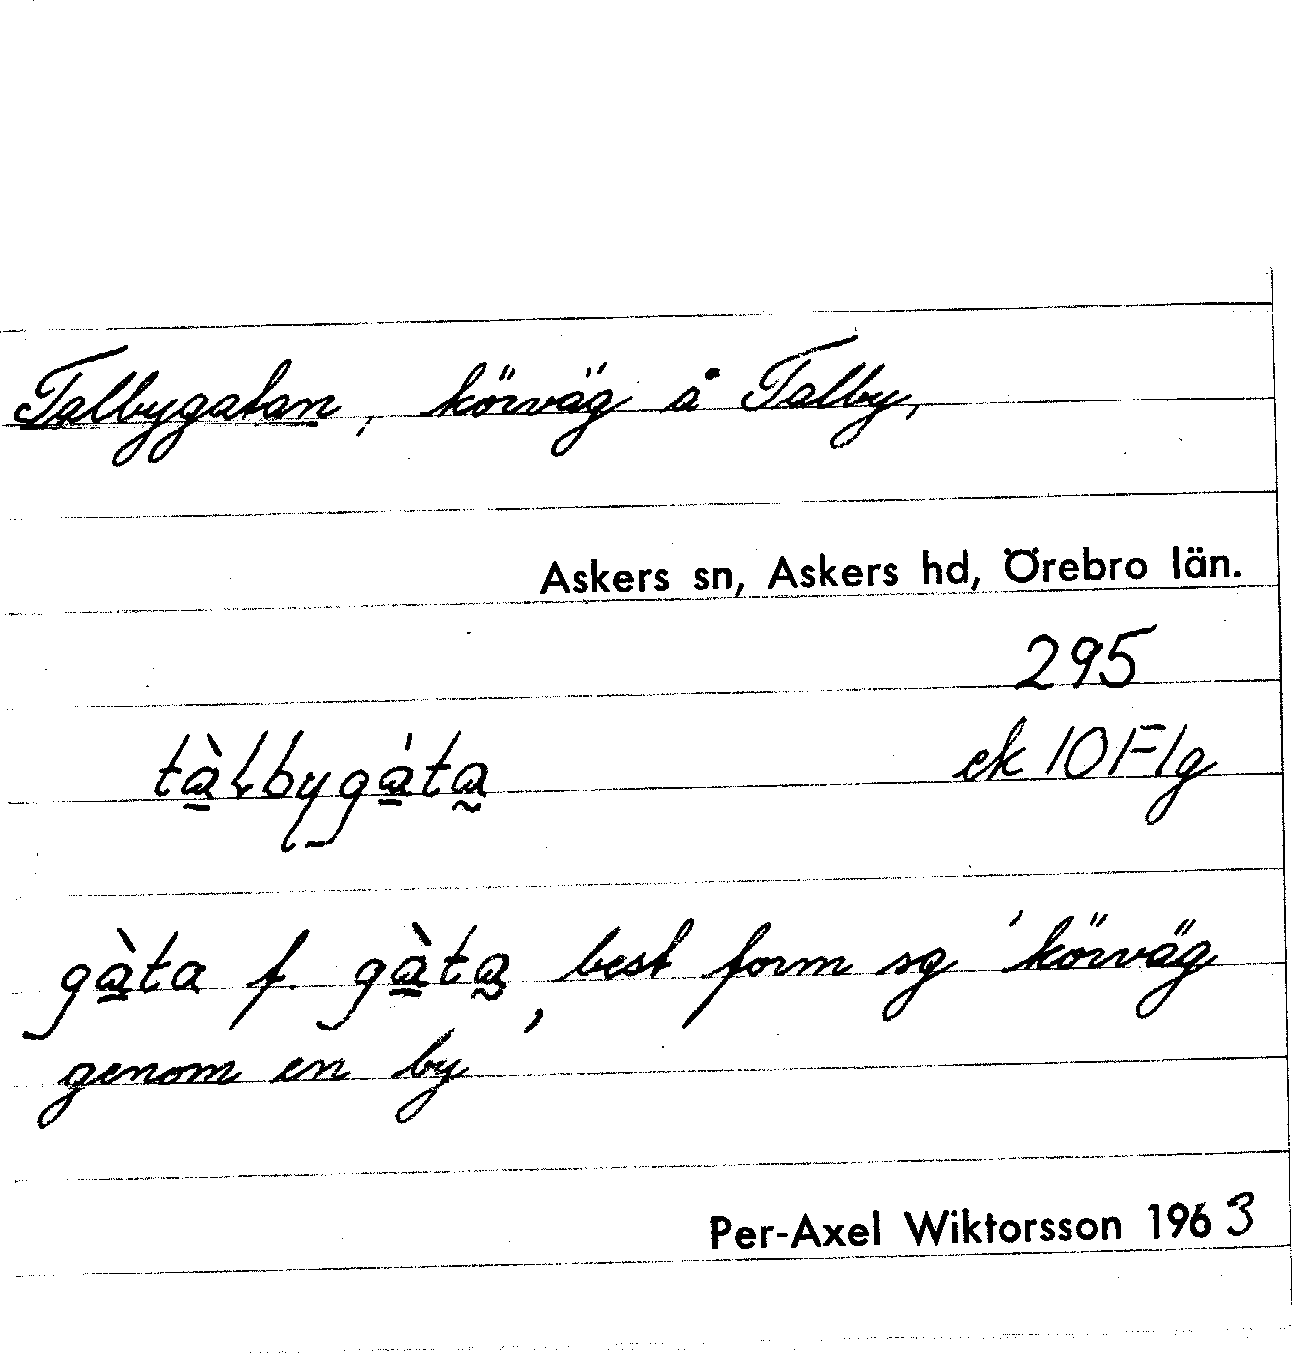 Talbygatan, körväg å Talby,
Askers sn, Askers hd, Örebro län.
295
tàlbygáta ek 10 F1g
gàta f. gàta, best form sg 'körväg
genom en by
Per-Axel Wiktorsson 1963